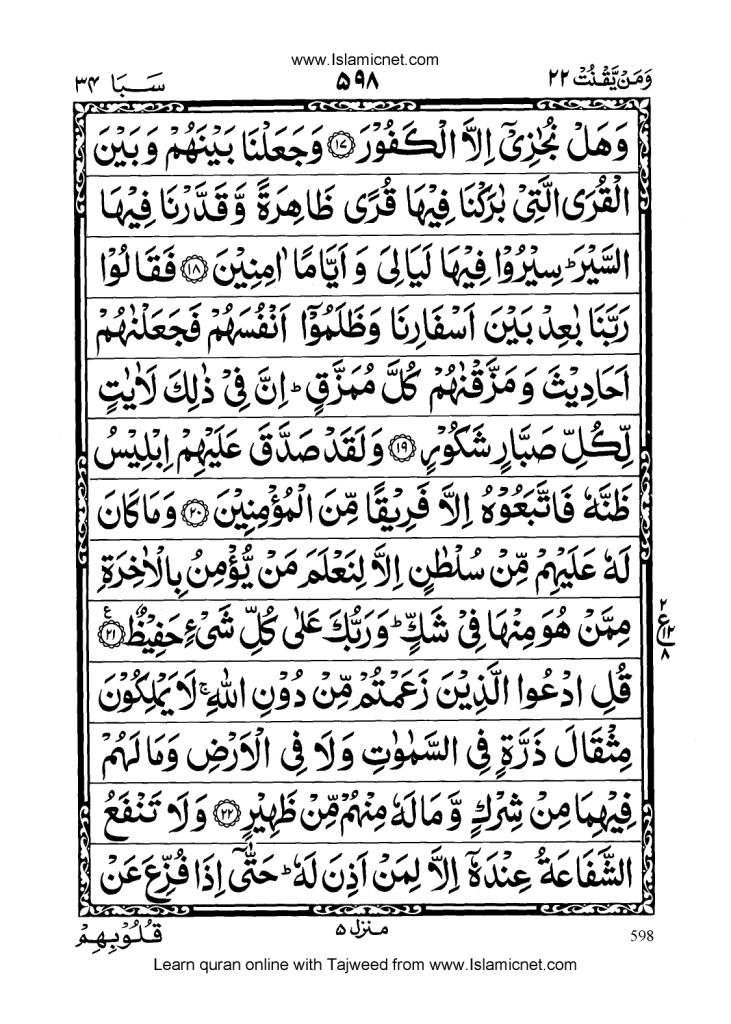 www.Islamicnet.com
وَمَنْ يَّقْنُتْ ٢٢
۵۹۸
سَبَا ٣۴
وَهَلْ نُجٰزِیْۤ اِلَّا الْكَفُوْرَ ۝۱۷ وَجَعَلْنَا بَیْنَهُمْ وَبَیْنَ
الْقُرَی الَّتِیْ بٰرَكْنَا فِیْهَا قُرًی ظَاهِرَةً وَّقَدَّرْنَا فِیْهَا
السَّیْرَ ؕ سِیْرُوْا فِیْهَا لَیَالِیَ وَاَیَّامًا اٰمِنِیْنَ ۝۱۸ فَقَالُوْا
رَبَّنَا بٰعِدْ بَیْنَ اَسْفَارِنَا وَظَلَمُوْۤا اَنْفُسَهُمْ فَجَعَلْنٰهُمْ
اَحَادِیْثَ وَمَزَّقْنٰهُمْ كُلَّ مُمَزَّقٍ ؕ اِنَّ فِیْ ذٰلِكَ لَاٰیٰتٍ
لِّكُلِّ صَبَّارٍ شَكُوْرٍ ۝۱۹ وَلَقَدْ صَدَّقَ عَلَیْهِمْ اِبْلِیْسُ
ظَنَّهٗ فَاتَّبَعُوْهُ اِلَّا فَرِیْقًا مِّنَ الْمُؤْمِنِیْنَ ۝۲۰ وَمَا كَانَ
لَهٗ عَلَیْهِمْ مِّنْ سُلْطٰنٍ اِلَّا لِنَعْلَمَ مَنْ یُّؤْمِنُ بِالْاٰخِرَةِ
مِمَّنْ هُوَ مِنْهَا فِیْ شَكٍّ ؕ وَرَبُّكَ عَلٰی كُلِّ شَیْءٍ حَفِیْظٌ ۝۲۱ ع
٢
ع ١٢
٨
قُلِ ادْعُوا الَّذِیْنَ زَعَمْتُمْ مِّنْ دُوْنِ اللّٰهِ ۚ لَا یَمْلِكُوْنَ
مِثْقَالَ ذَرَّةٍ فِی السَّمٰوٰتِ وَلَا فِی الْاَرْضِ وَمَا لَهُمْ
فِیْهِمَا مِنْ شِرْكٍ وَّمَا لَهٗ مِنْهُمْ مِّنْ ظَهِیْرٍ ۝۲۲ وَلَا تَنْفَعُ
الشَّفَاعَةُ عِنْدَهٗۤ اِلَّا لِمَنْ اَذِنَ لَهٗ ؕ حَتّٰۤی اِذَا فُزِّعَ عَنْ
منزل ۵
قُلُوْبِهِمْ
598
Learn quran online with Tajweed from www.Islamicnet.com